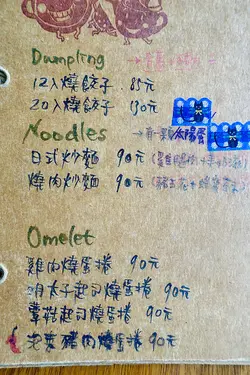 Dumpling
12入燒餃子 85元
20入燒餃子 130元
Noodles 太陽蛋
日式炒麵 90元
燒肉炒麵 90元
Omelet
雞肉燒蛋捲 90元
明太子起司燒蛋捲 90元
蘑菇起司燒蛋捲 90元
泡菜豬肉燒蛋捲 90元